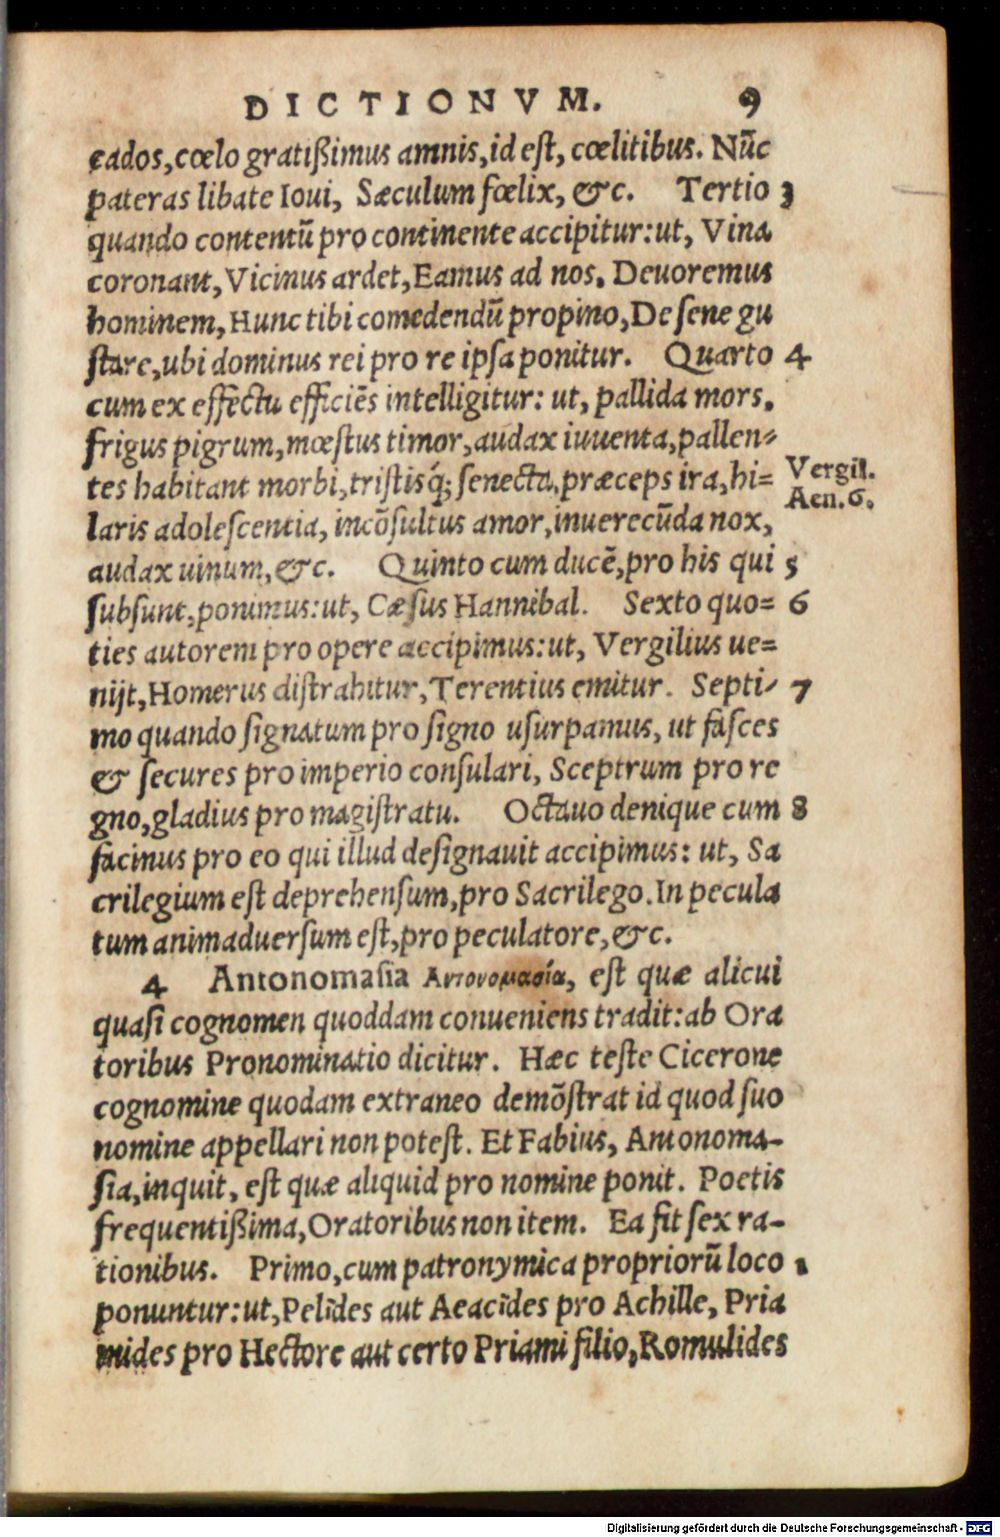 DICTIONVM. 9
cados, cœlo gratißimus amnis, id est, cœlitibus. Nūc
pateras libate Ioui, Sæculum fœlix, &c. Tertio 3
quando contentū pro continente accipitur: ut, Vina
coronant, Vicinus ardet, Eamus ad nos. Deuoremus
hominem, Hunc tibi comedendū propino, De sene gu
stare, ubi dominus rei pro re ipsa ponitur. Quarto 4
cum ex effectu efficiēs intelligitur: ut, pallida mors.
frigus pigrum, mœstus timor, audax iuuenta, pallen-
tes habitant morbi, tristisq́; senecta, præceps ira, hi= Vergil.
Aen. 6.
laris adolescentia, incōsultus amor, inuerecūda nox,
audax uinum, &c. Quinto cum ducē, pro his qui 5
subsunt, ponimus: ut, Cæsus Hannibal. Sexto quo= 6
ties autorem pro opere accipimus: ut, Vergilius ue=
nijt, Homerus distrahitur, Terentius emitur. Septi- 7
mo quando signatum pro signo usurpamus, ut fasces
& secures pro imperio consulari, Sceptrum pro re
gno, gladius pro magistratu. Octauo denique cum 8
facinus pro eo qui illud designauit accipimus: ut, Sa
crilegium est deprehensum, pro Sacrilego. In pecula
tum animaduersum est, pro peculatore, &c.
4 Antonomasia Αντονομασία, est quæ alicui
quasi cognomen quoddam conueniens tradit: ab Ora
toribus Pronominatio dicitur. Hæc teste Cicerone
cognomine quodam extraneo demōstrat id quod suo
nomine appellari non potest. Et Fabius, Antonoma-
sia, inquit, est quæ aliquid pro nomine ponit. Poetis
frequentißima, Oratoribus non item. Ea fit sex ra-
tionibus. Primo, cum patronymica propriorū loco 1
ponuntur: ut, Pelides aut Aeacides pro Achille, Pria
mides pro Hectore aut certo Priami filio, Romulides
Digitalisierung gefördert durch die Deutsche Forschungsgemeinschaft - DFG